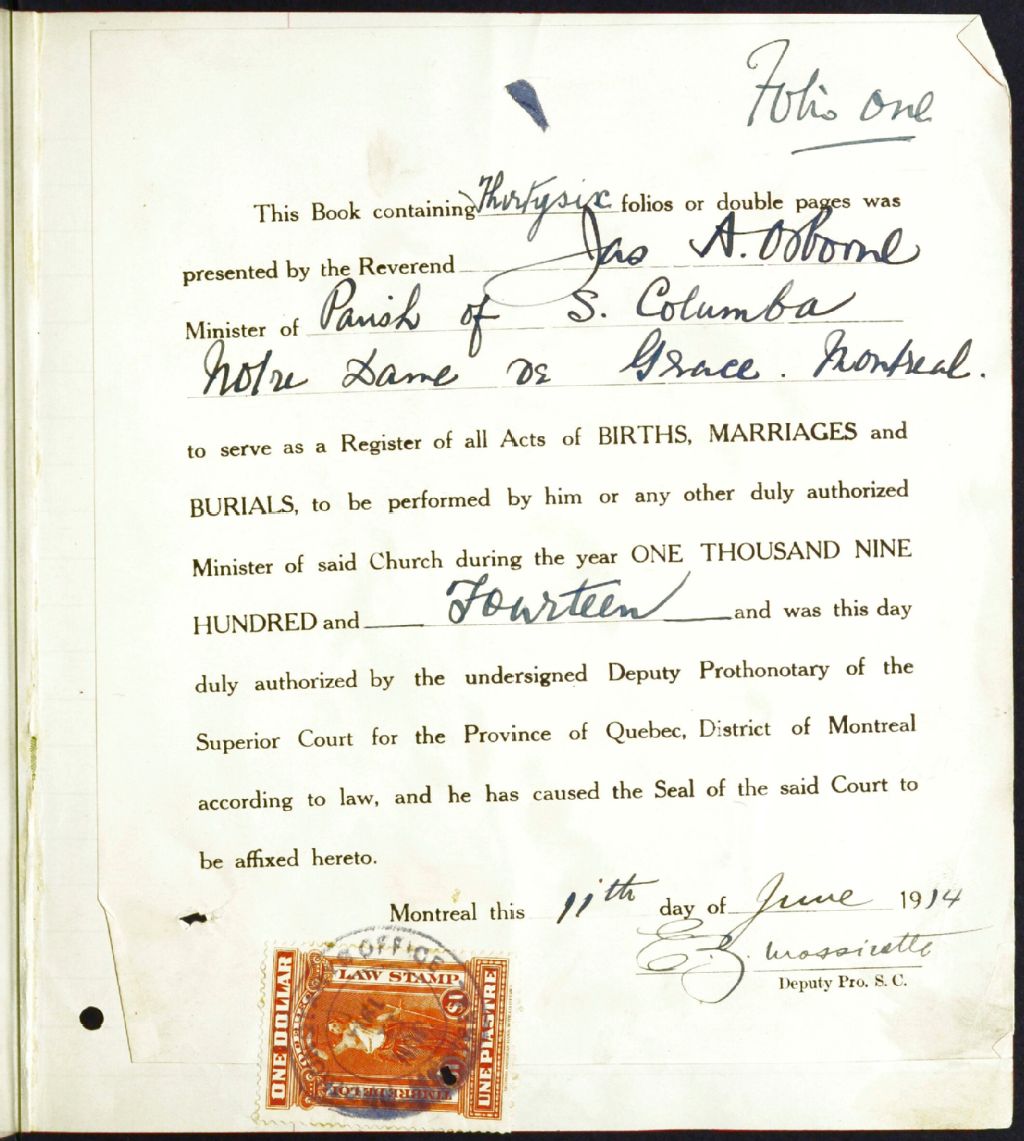 Folio one
This Book containing Thirtysix folios or double pages was
presented by the Reverend Jas A. Osborne
Minister of Parish of S. Columba
Notre Dame de Grace. Montreal.
to serve as a Register of all Acts of BIRTHS, MARRIAGES and
BURIALS, to be performed by him or any other duly authorized
Minister of said Church during the year ONE THOUSAND NINE
HUNDRED and Fourteen and was this day
duly authorized by the undersigned Deputy Prothonotary of the
Superior Court for the Province of Quebec, District of Montreal
according to law, and he has caused the Seal of the said Court to
be affixed hereto.
Montreal this 11th day of June 1914
Deputy Pro. S. C.
OFFICE
LAW STAMP
ONE DOLLAR
QUEBEC
$1
UNE PIASTRE
TIMBRE DE LOI